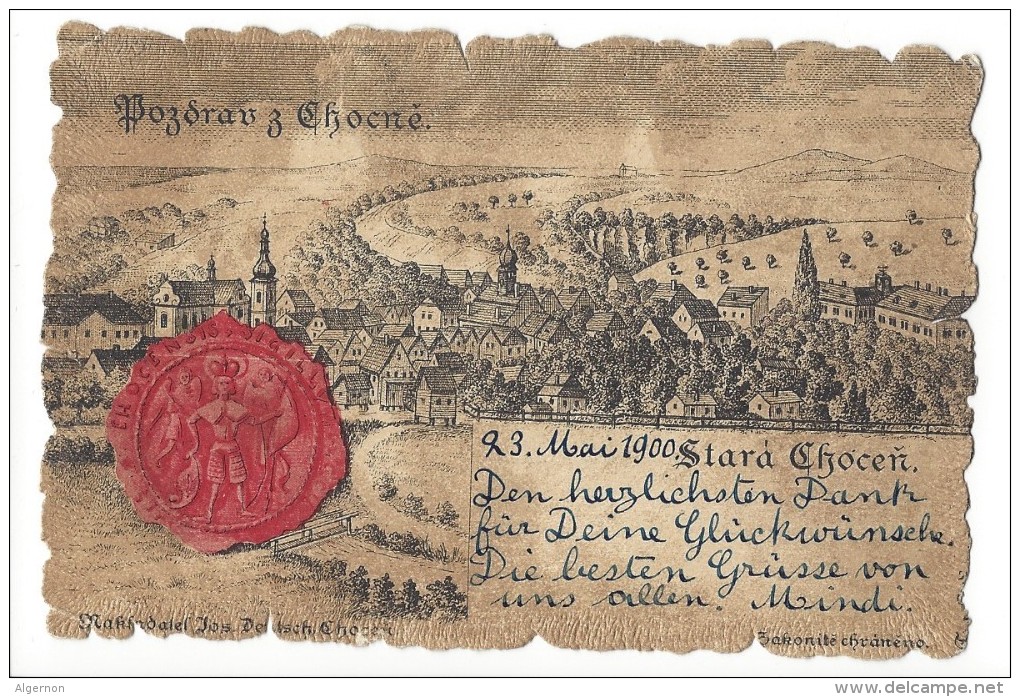 Pozdrav z Chocně.
23. Mai 1900.
Stará Choceň.
Den herzlichsten Dank
für Deine Glückwünsche.
Die besten Grüsse von
uns allen. Mindi.
Nakladatel Jos. Deutsch, Choceň
Zákonitě chráněno.
Algernon
www.delcampe.net